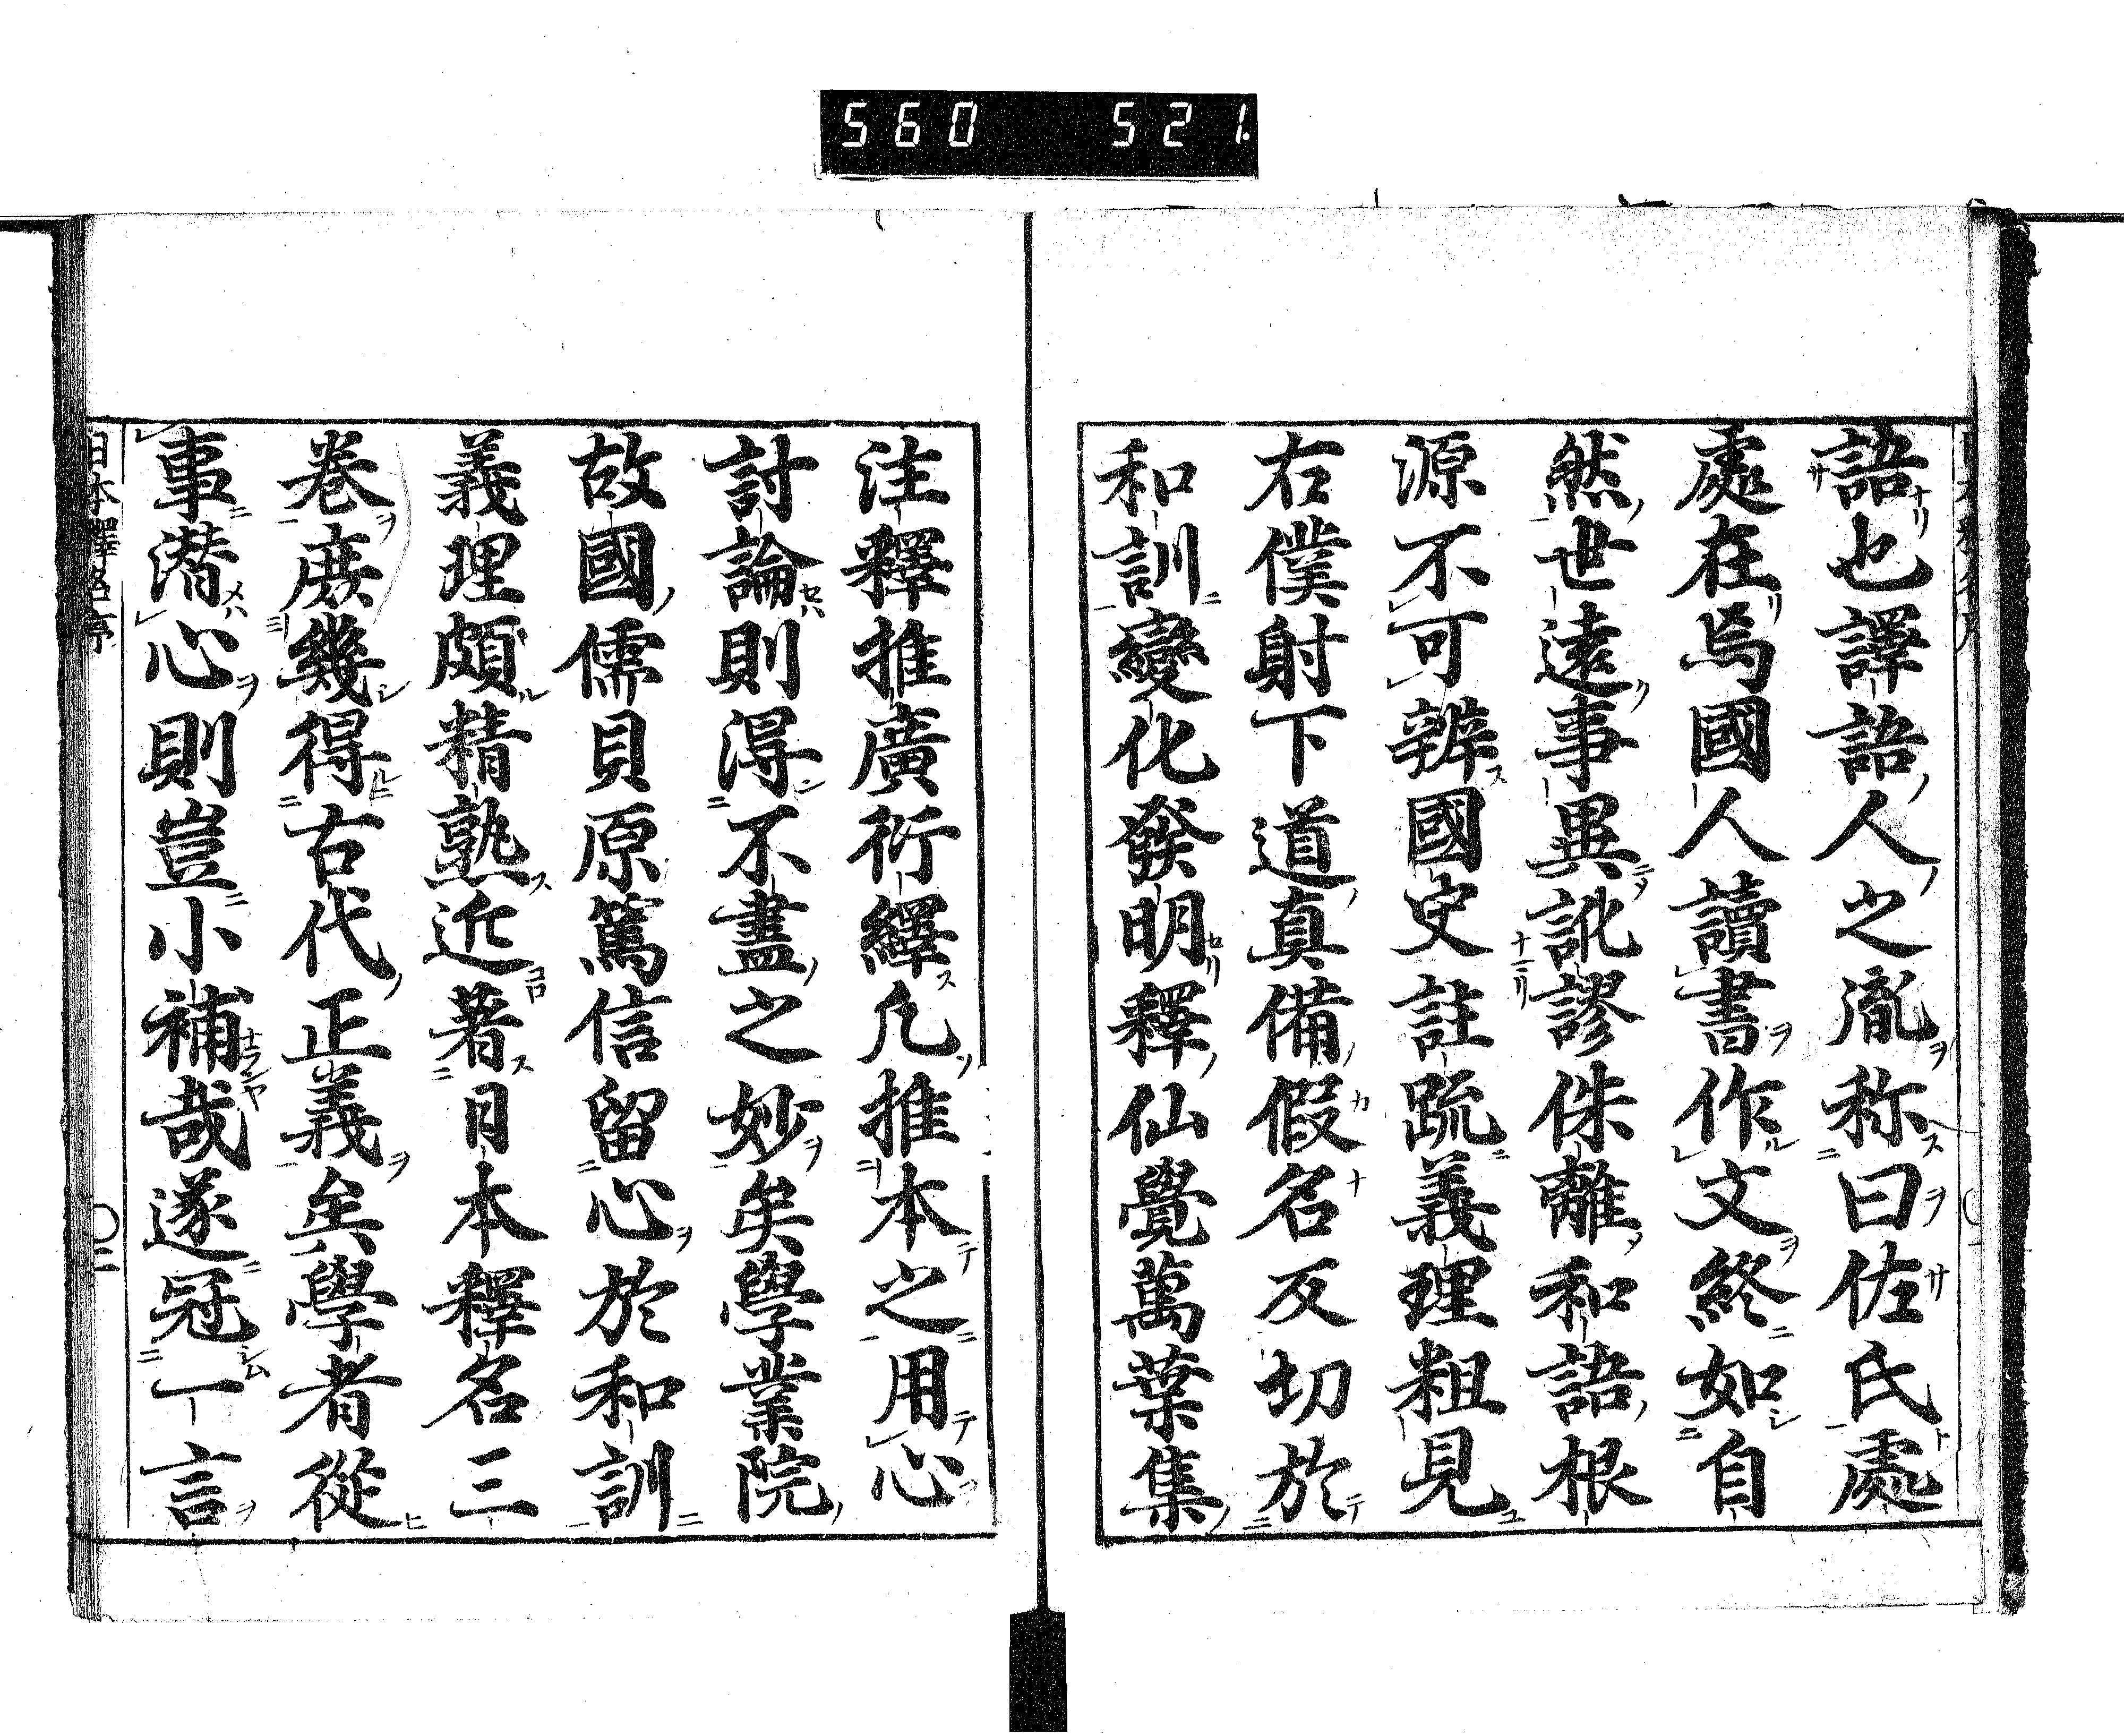 560 521.
語也譯語人之胤称曰佐氏處
處在焉國人讀書作文終如自
然世遠事異訛謬侏離和語根
源不可辨國史註疏義理粗見
右僕射下道真備假名反切於
和訓變化發明釋仙覺萬葉集
注釋推廣衍繹凡推本之用心
討論則得不盡之妙矣學業院
故國儒貝原篤信留心於和訓
義理頗精熟近著日本釋名三
巻庶幾得古代正義矣學者從
事潜心則豈小補哉遂冠一言
日本釋名序
〇二